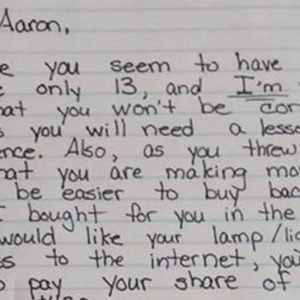 Aaron,
you seem to have
only 13, and I'm
you won't be
you will need a
Also, as you threw
you are making
be easier to buy
bought for you in the
would like your lamp/
to the internet,
pay your share of